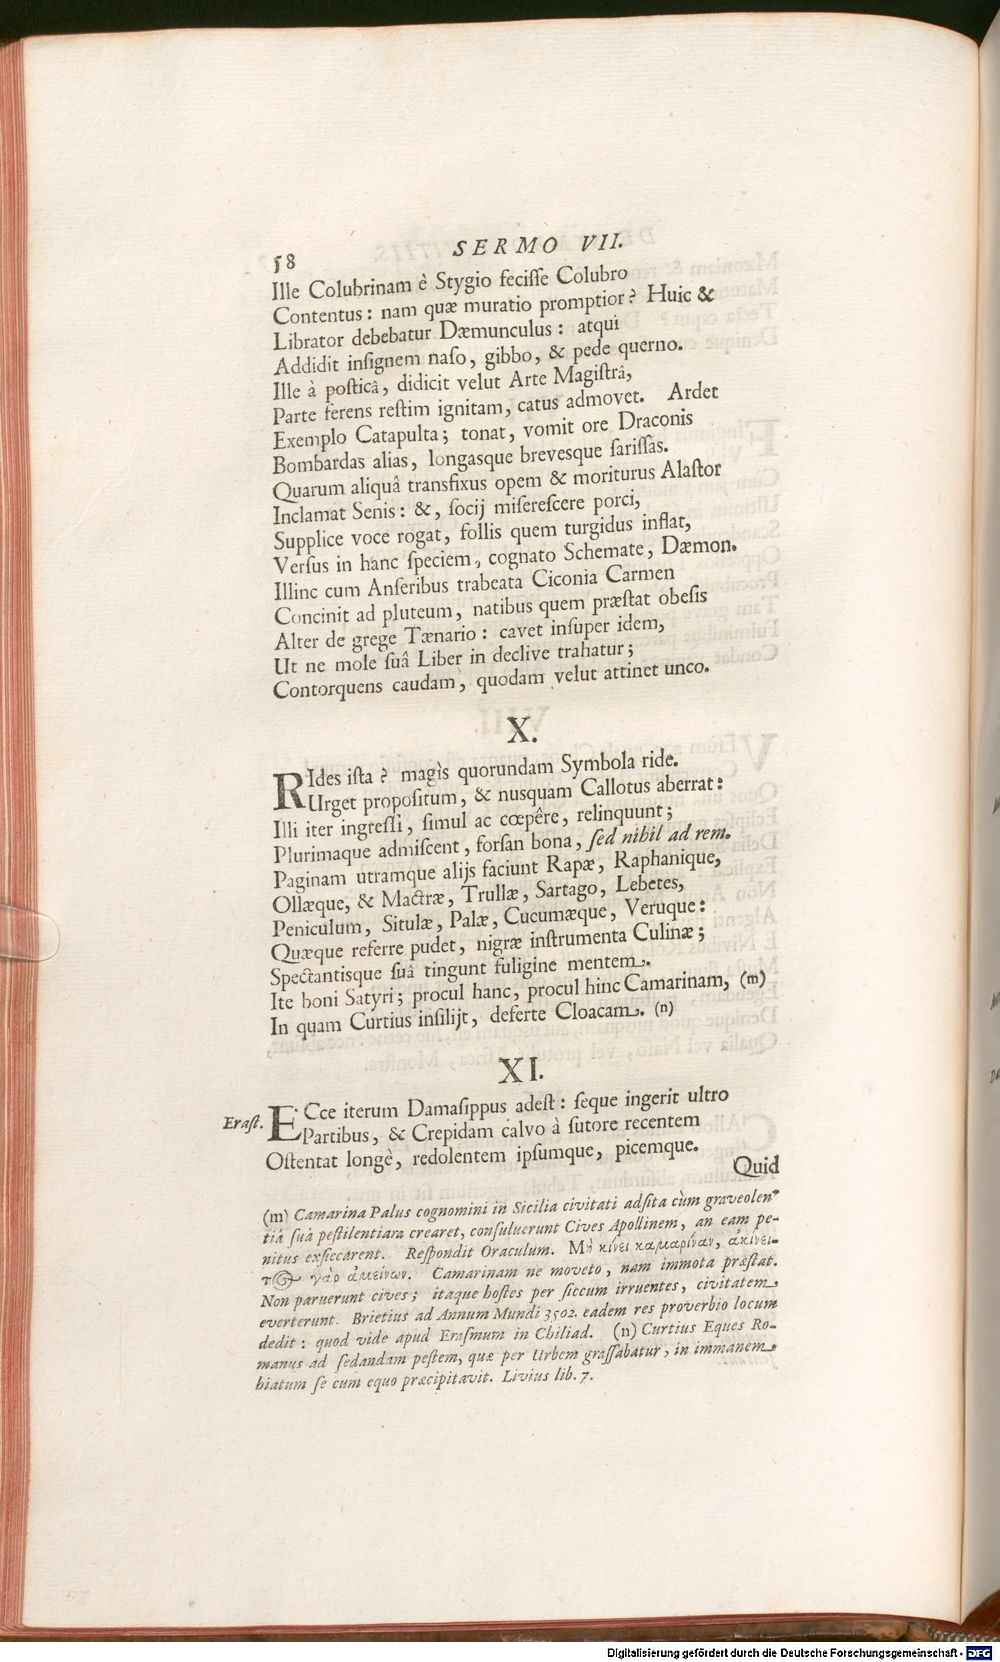 58 SERMO VII.
Ille Colubrinam è Stygio fecisse Colubro
Contentus: nam quæ muratio promptior? Huic &
Librator debebatur Dæmunculus: atqui
Addidit insignem naso, gibbo, & pede querno.
Ille à posticâ, didicit velut Arte Magistrâ,
Parte ferens restim ignitam, catus admovet. Ardet
Exemplo Catapulta; tonat, vomit ore Draconis
Bombardas alias, longasque brevesque sarissas.
Quarum aliquâ transfixus opem & moriturus Alastor
Inclamat Senis: &, socij miserescere porci,
Supplice voce rogat, follis quem turgidus inflat,
Versus in hanc speciem, cognato Schemate, Dæmon.
Illinc cum Anseribus trabeata Ciconia Carmen
Concinit ad pluteum, natibus quem præstat obesis
Alter de grege Tænario: cavet insuper idem,
Ut ne mole suâ Liber in declive trahatur;
Contorquens caudam, quodam velut attinet unco.
X.
RIdes ista? magìs quorundam Symbola ride.
Urget propositum, & nusquam Callotus aberrat:
Illi iter ingressi, simul ac cœpêre, relinquunt;
Plurimaque admiscent, forsan bona, sed nihil ad rem.
Paginam utramque alijs faciunt Rapæ, Raphanique,
Ollæque, & Mactræ, Trullæ, Sartago, Lebetes,
Peniculum, Situlæ, Palæ, Cucumæque, Veruque:
Quæque referre pudet, nigræ instrumenta Culinæ;
Spectantisque suâ tingunt fuligine mentem.
Ite boni Satyri; procul hanc, procul hinc Camarinam, (m)
In quam Curtius insilijt, deferte Cloacam. (n)
XI.
Erast. ECce iterum Damasippus adest: seque ingerit ultro
Partibus, & Crepidam calvo à sutore recentem
Ostentat longè, redolentem ipsumque, picemque.
Quid
(m) Camarina Palus cognomini in Sicilia civitati adsita cùm graveolen-
tiâ suâ pestilentiam crearet, consuluerunt Cives Apollinem, an eam pe-
nitus exsiccarent. Respondit Oraculum. Μὴ κίνει καμαρίναν, ἀκίνει-
τος γὰρ ἀμείνων. Camarinam ne moveto, nam immota præstat.
Non paruerunt cives; itaque hostes per siccum irruentes, civitatem
everterunt. Brietius ad Annum Mundi 3502. eadem res proverbio locum
dedit: quod vide apud Erasmum in Chiliad. (n) Curtius Eques Ro-
manus ad sedandam pestem, quæ per Urbem grassabatur, in immanem
hiatum se cum equo præcipitavit. Livius lib. 7.
Digitalisierung gefördert durch die Deutsche Forschungsgemeinschaft - DFG